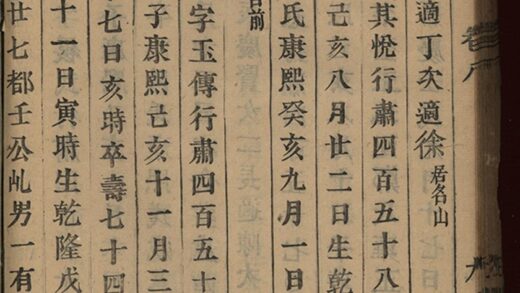 卷八
適丁次適徐居名山
其悅行肅四百五十八
己亥八月廿二日生乾
氏康熙癸亥九月一日
日前
字玉傳行肅四百五十
子康熙己亥十一月三
七日亥時卒壽七十四
十一日寅時生乾隆戊
廿七都壬公乢男一有